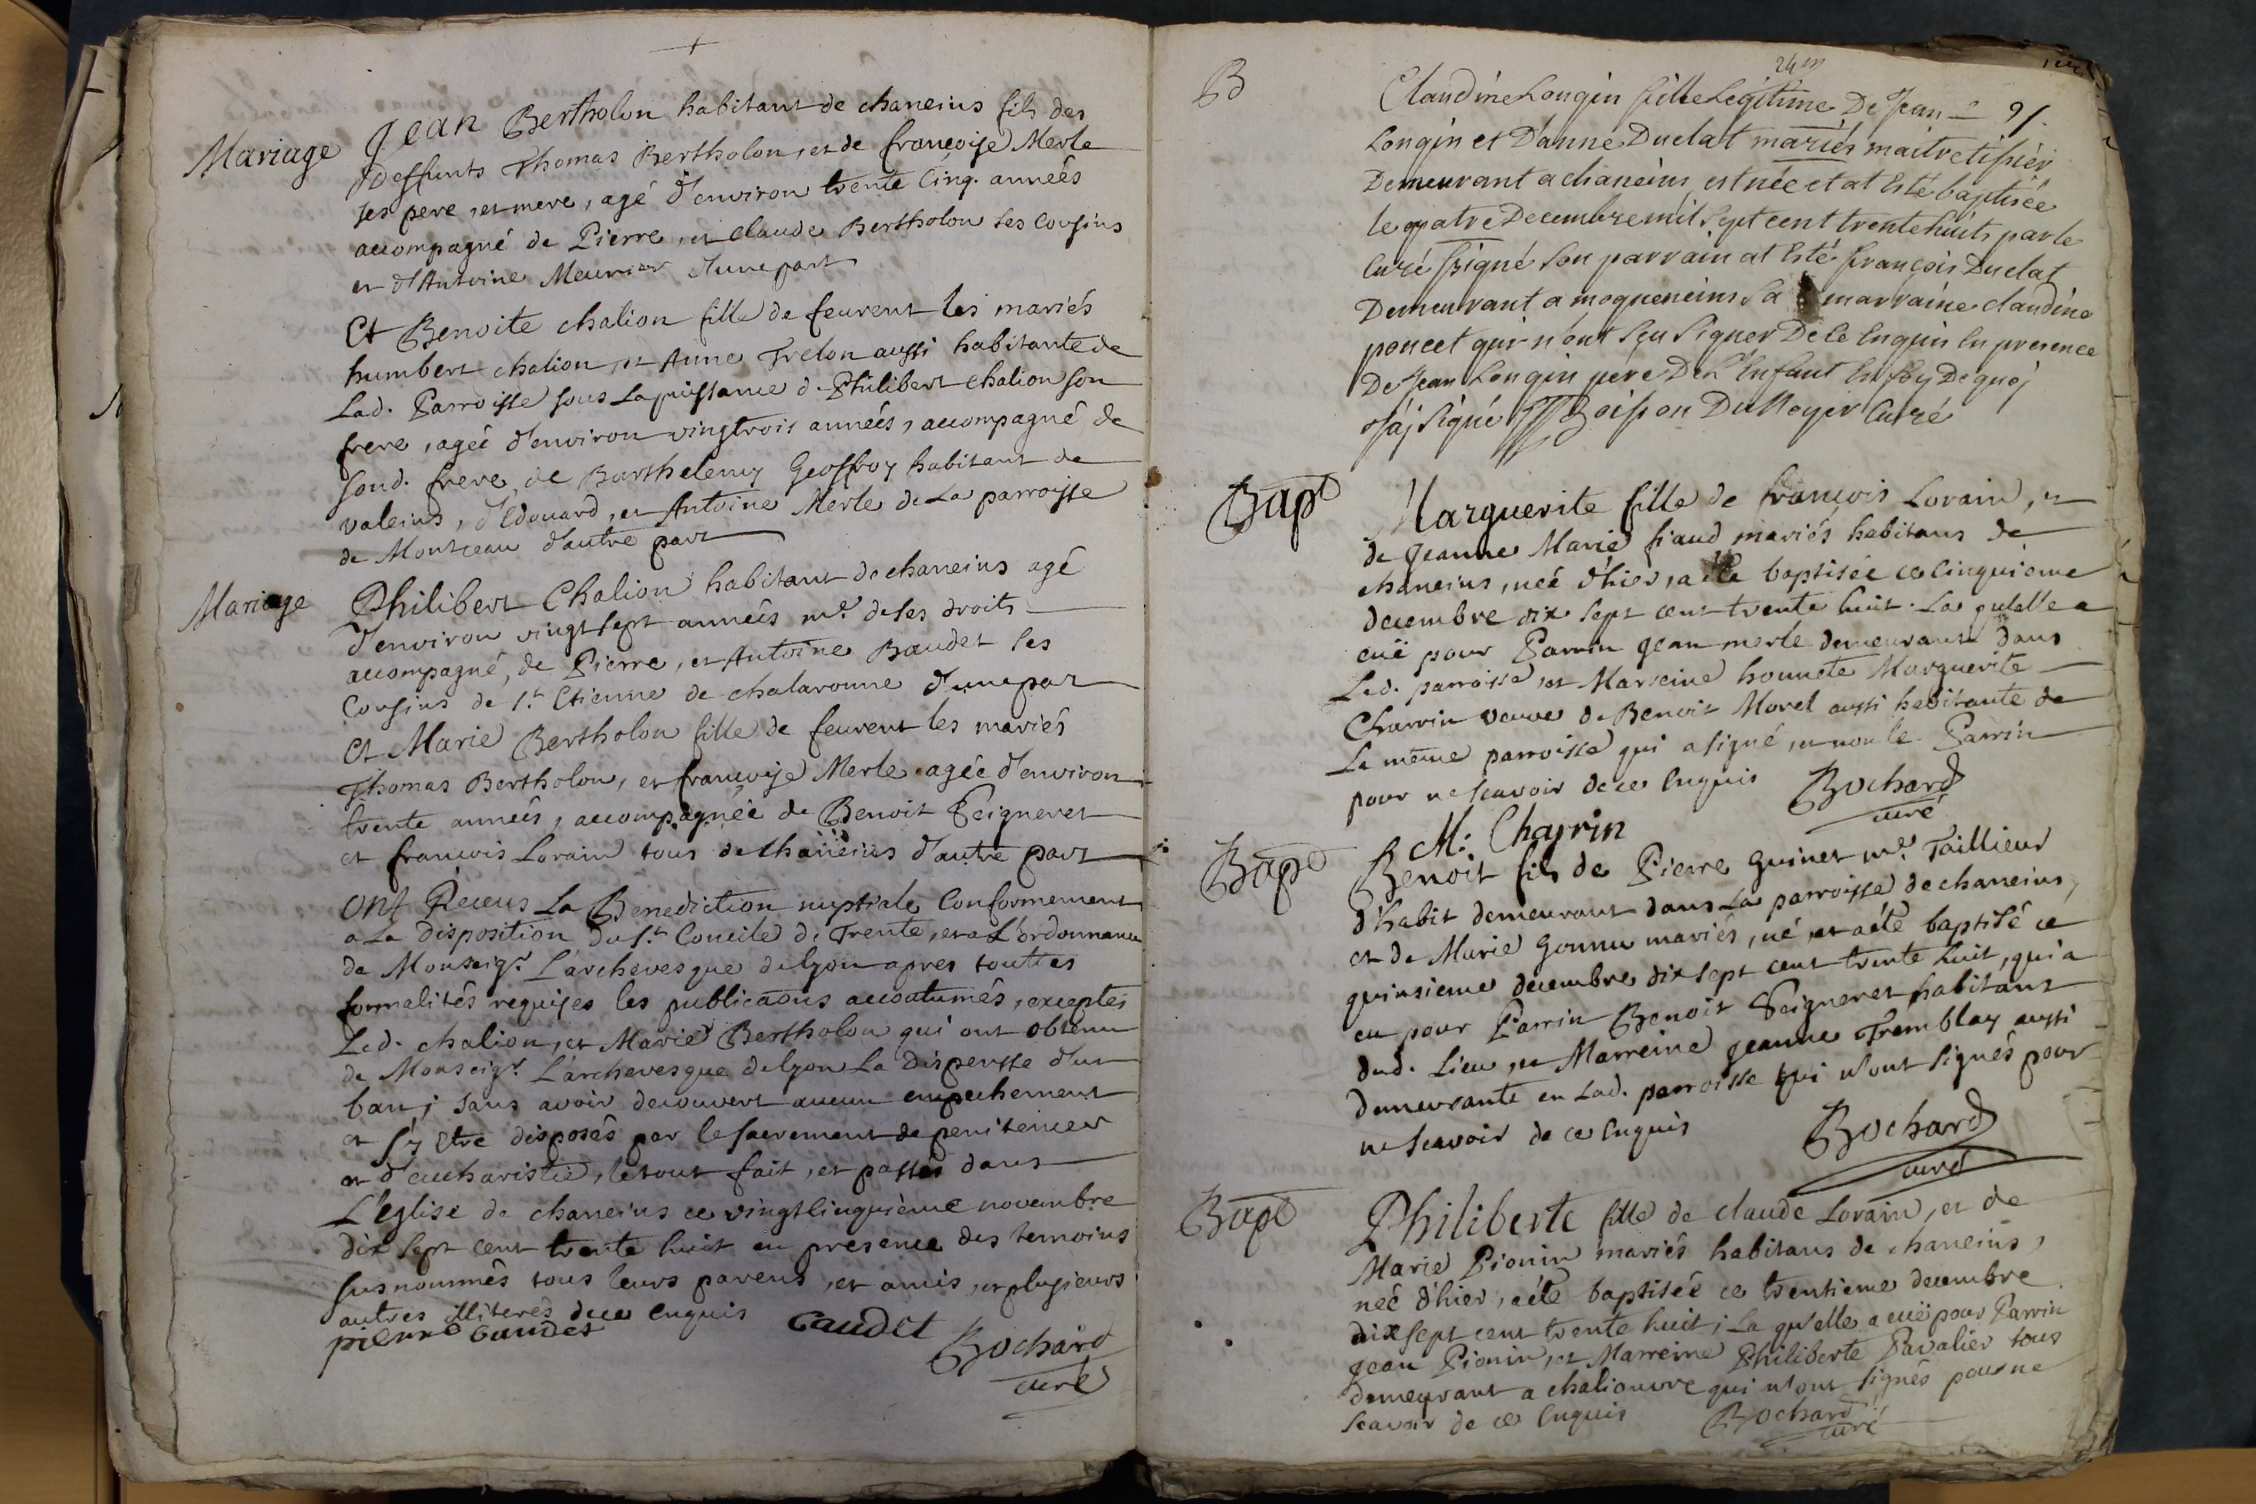 Mariage
Jean Bertholon habitant de chaneins fils des
deffunts Thomas Bertholon, et de françoise Merle
ses pere, et mere, agé d'environ trente cinq années
accompagné de Pierre, et claude Bertholon ses cousins
et d'Antoine Meunier d'une part
Et Benoite chalion fille de feurent les mariés
humbert chalion, et Anne Trelon aussi habitante de
Lad. Parroisse sous La puissance de Philibert chalion son
frere, agée d'environ vingtrois années, accompagné de
sond. frere, de Barthelemy Geoffroy habitant de
valeins, d'Edouard, et Antoine Merle de La parroisse
de Montceau d'autre part
Mariage
Philibert Chalion habitant de chaneins agé
d'environ vingt sept années me. de ses droits
accompagné, de Pierre, et Antoine Baudet ses
Cousins de st. Etienne de chalaronne d'une part
Et Marie Bertholon fille de feurent les mariés
Thomas Bertholon, et françoise Merle agée d'environ
trente années, accompagnée de Benoit Seigneret
et françois Lorain tous de Chaneins d'autre part
Ont Receus La Benediction nuptiale Conformement
a La disposition du st. Concile de Trente, et a L'ordonnance
de Monseigr. L'archevesque de lyon apres touttes
formalités requises les publicaons accoutumés, exceptés
Led. chalion, et Marie Bertholon qui ont obtenu
de Monseigr. L'archevesque de lyon La dispensse d'un
ban; sans avoir decouvert aucun empechement
et s'y être disposés par le sacrement de penitence
et d'eucharistie, le tout fait, et passé dans
L'eglise de chaneins ce vingt cinquième novembre
dix sept cent trente huit en presence des temoins
susnommés tous leurs parens, et amis, et plusieurs
autres illiterés de ce enquis
pierre baudet baudet
Bochard
curé
B
24 m
91.
Claudine Longin fille Legitime De Jean
Longin et D'anne Duclat mariés maitre tissier
Demeurant a chaneins, est née et at Esté baptisée
le quatre Decembre mil sept cent trente huits par le
Curé ssigné son parrain at Esté françois Duclat
Demeurant a mogneneins sa marraine claudine
poncet qui n'ont sçu signer De le Enquis En presence
De Jean Longin pere De L'Enfant En foy De quoj
J'áj signé Boisson DuNoyer Curé
Bapt
Marguerite fille de françois Lorain, et
de Jeanne Marie fiaud mariés habitans de
chaneins, née d'hier, a été baptisée ce cinquième
decembre dix sept cent trente huit. La qu'elle a
euë pour Parrin Jean merle demeurant dans
Led. parroisse, et Marreine honnete Marguerite
Charrin veuve de Benoit Morel aussi habitante de
La même parroisse qui a signé, et non le Parrin
pour ne scavoir de ce enquis
Bochard
curé
M: Charrin
Bapt
Benoit fils de Pierre Guinet me. Taillieur
d'habit demeurant dans La parroisse de chaneins,
et de Marie Gonnu mariés, né, et a été baptisé ce
quinsieme decembre dix sept cent trente huit, qui a
eu pour Parrin Benoit Seigneret habitant
dud. Lieu, et Marreine Jeanne Tremblay aussi
demeurante en Lad. parroisse qui n'ont signés pour
ne scavoir de ce enquis
Bochard
curé
Bapt
Philiberte fille de claude Lorain, et de
Marie Pionin mariés habitans de chaneins,
née d'hier, a été baptisée ce trentieme decembre
dix sept cent trente huit; La qu'elle a euë pour Parrin
Jean Pionin, et Marreine Philiberte Pavalier tous
demeurant a chaliouvre qui n'ont signés pour ne
scavoir de ce enquis
Bochard
curé